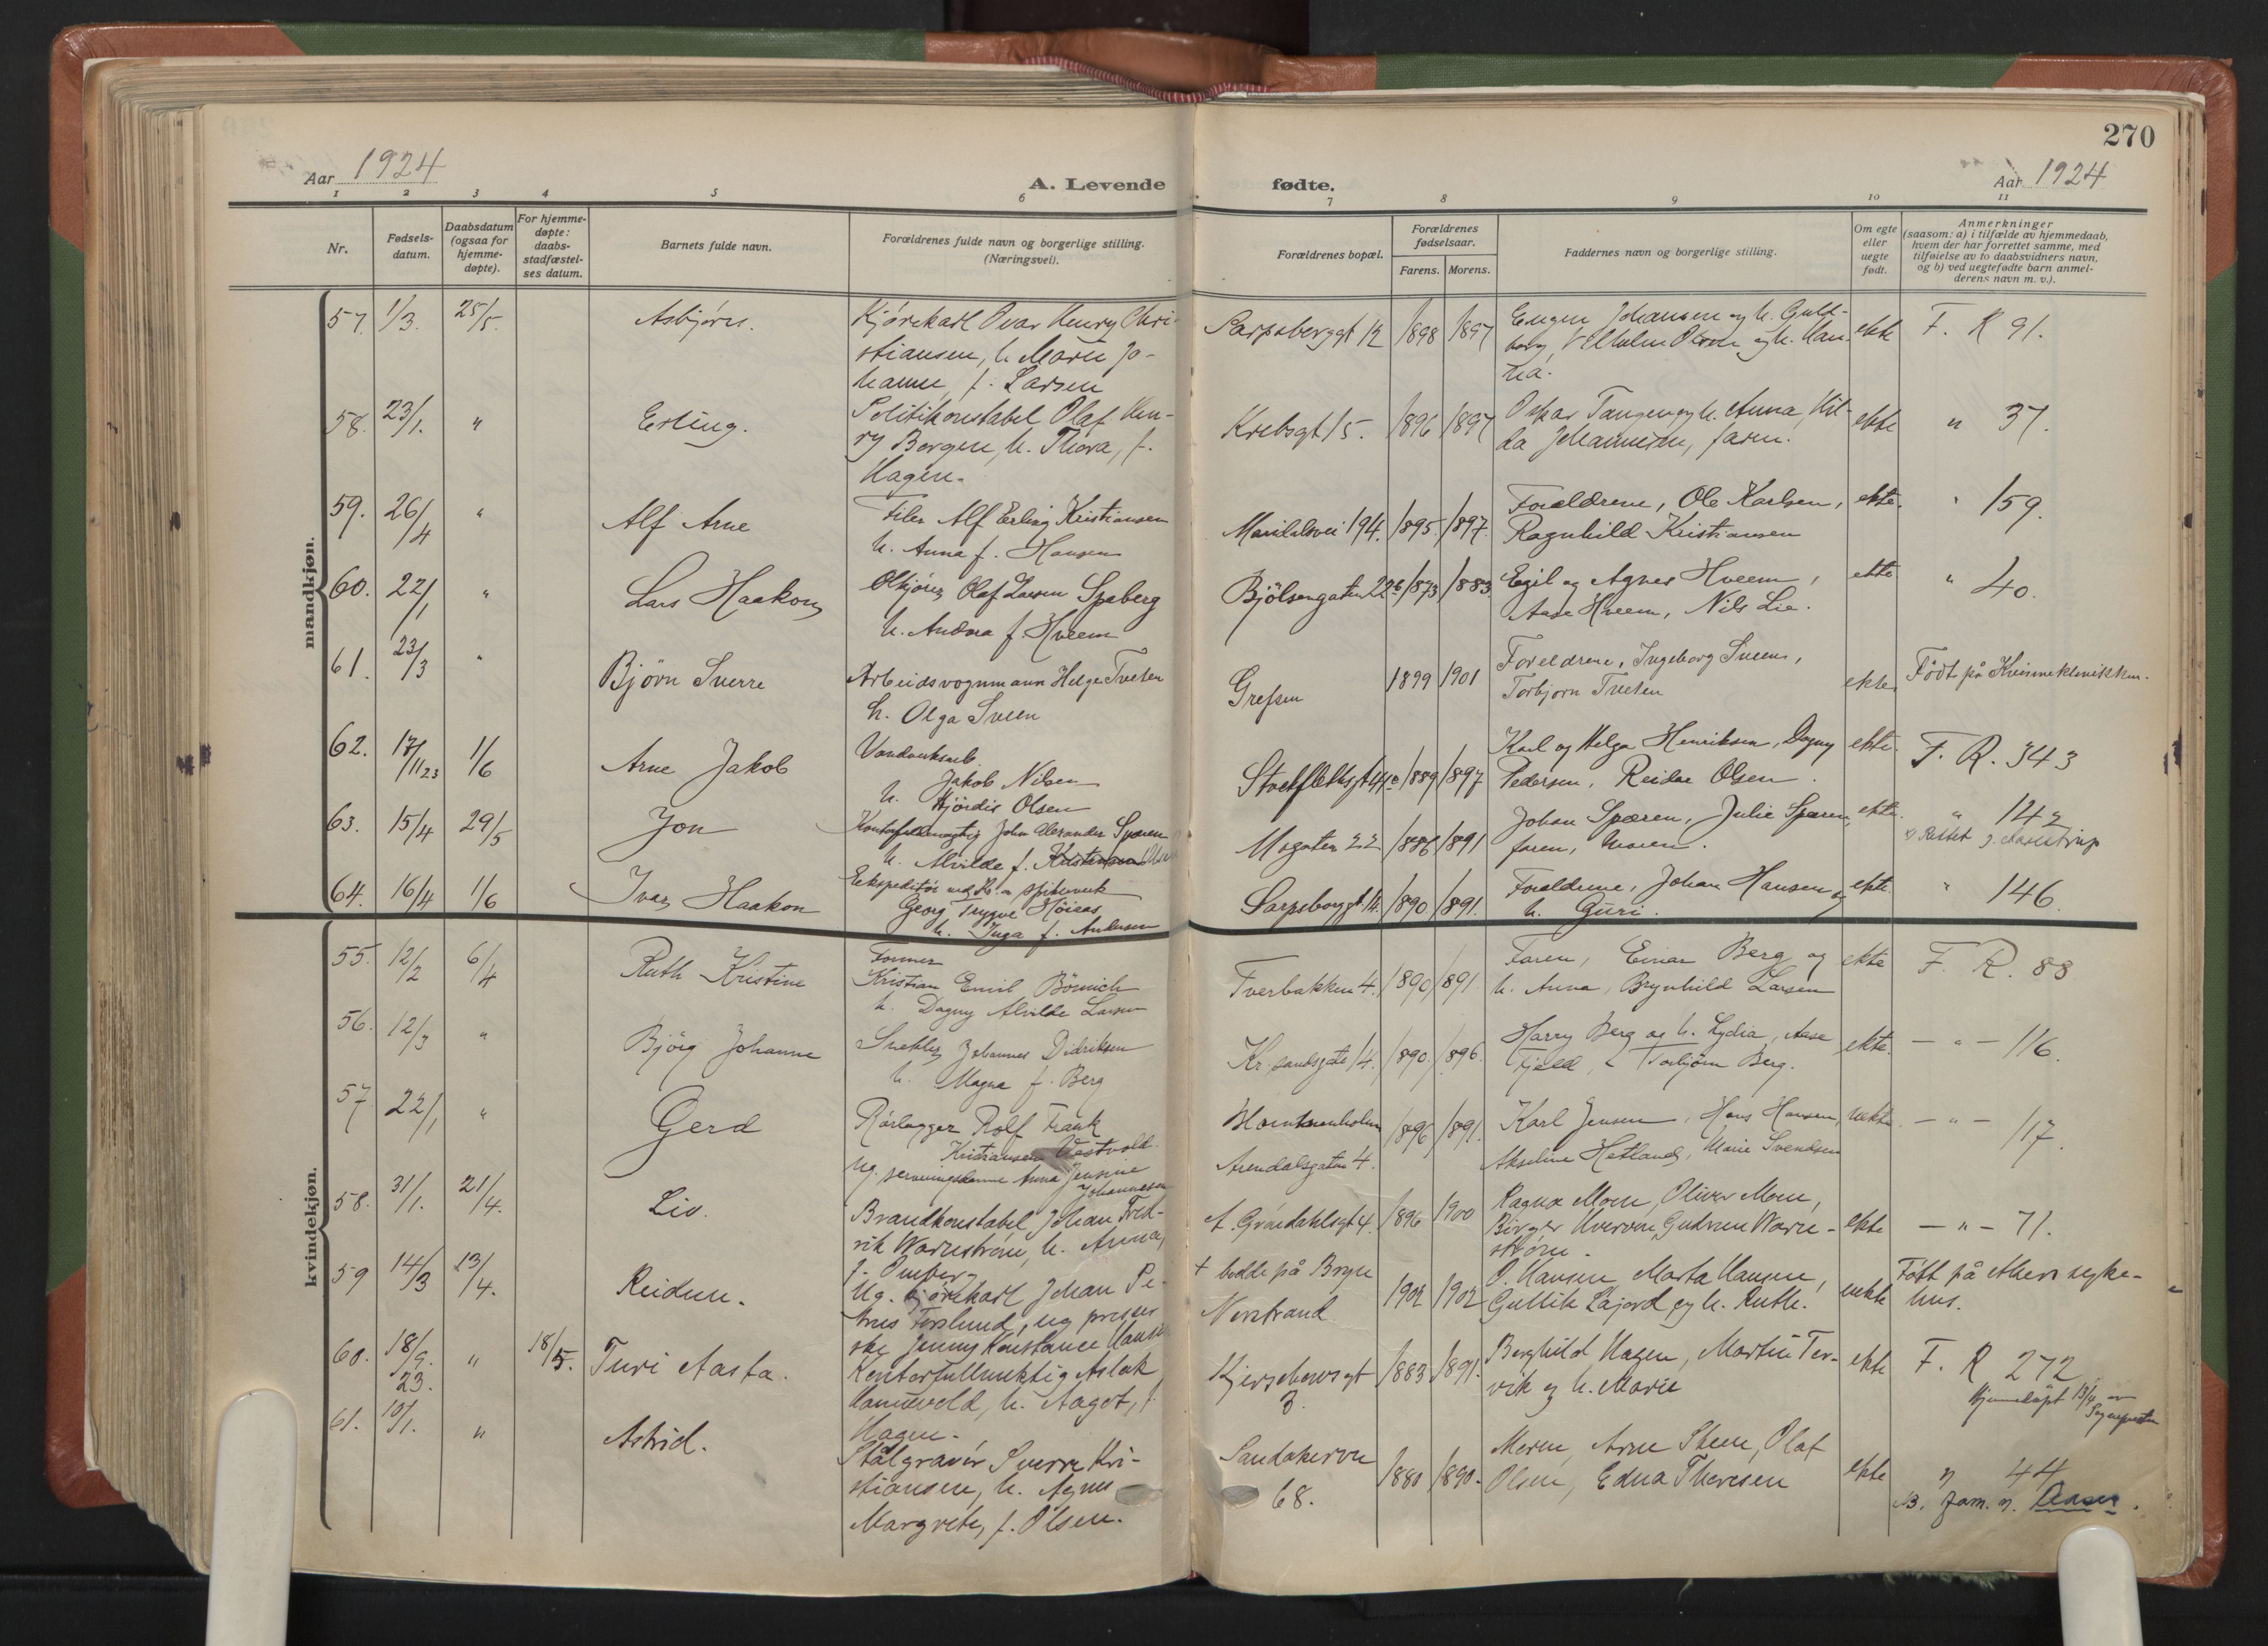 270
Aar 1924
A. Levende fødte.
Aar 1924
1 2 3 4 5 6 7 8 9 10 11
Nr.
Fødsels-
datum.
Daabsdatum
(ogsaa for
hjemme-
døpte).
For hjemme-
døpte:
daabs-
stadfæstel-
ses datum.
Barnets fulde navn.
Forældrenes fulde navn og borgerlige stilling.
(Næringsvei).
Forældrenes bopæl.
Forældrenes
fødselsaar.
Farens. Morens.
Faddernes navn og borgerlige stilling.
Om egte
eller
uegte
født.
Anmerkninger
(saasom: a) i tilfælde av hjemmedaab,
hvem der har forrettet samme, med
tilføielse av to daabsvidners navn,
og b) ved uegtefødte barn anmel-
derens navn m. v.).
mandkjøn.
57. 1/3. 25/5. Asbjörn.
Kjörekarl Ovar Henry Chri-
stiansen, h. Marie Jo-
hanne, f. Larsen
Sarpsborggt 12 1898 1897
Eugen Johansen og h. Guld-
borg, Vilhelm Olsen og h. Han-
na.
ekte F. R 91.
58. 23/1. " Erling.
Politikonstabel Olaf Hen-
ry Borgen, h. Thora, f.
Hagen.
Krebsgt 15. 1896 1897
Oskar Tangen og h. Anna, Hil-
da Johannesen, faren.
ekte " 37.
59. 26/4 " Alf Arne
Filer Alf Erling Kristiansen
h. Anna f. Hansen
Maridalsvei 194. 1895. 1897.
Forældrene, Ole Karlsen,
Ragnhild Kristiansen
ekte. " 159.
60. 22/1 " Lars Haakon
Ölkjörer Olaf Larsen Spaberg
h. Andora f. Hveem
Bjölsengaten 22 b 1873 1883.
Egil og Agnes Hveem,
Aase Hveem, Nils Lie.
ekte " 40.
61. 23/3 " Bjørn Sverre
Arbeidsvognmann Helge Tveten
h. Olga Sveen
Grefsen 1899 1901
Foreldrene, Ingeborg Sveen,
Torbjørn Tveten
ekte Födt på Kvinneklinikken.
62. 17/11 23 1/6 Arne Jakob
Jakob Nilsen
h. Hjördis Olsen
1889 1897
Karl og Helga Henriksen, Dagny
Pedersen, Reidar Olsen.
ekte. F. R. 343
63. 15/4 29/5 Jon
Kontorfullmægtig John Alexander Spæren
h. Alvilde f. Kristensen Olsen
Mogaten 22 1886 1891
Johan Spæren, Julie Spæren,
faren, moren.
ekte. " 142
64. 16/4 1/6 Ivar Haakon
Georg Trygve Höiaas
h. Inga f. Andersen
Sarpsborggt. 14. 1890. 1891.
Forældrene, Johan Hansen og
h. Guri.
ekte. " 146.
kvindekjøn.
55. 12/2 6/4 Ruth Kristine
Former
Kristian Emil Börnich
h. Dagny Alvilde Larsen
Tverbakken 4. 1890 1891.
Faren, Einar Berg og
h. Anna, Brynhild Larsen
ekte F. R. 88
56. 12/3 " Björg Johanne
Snekker Johannes Didriksen
h. Magna f. Berg
Kr.sandsgate 14. 1890. 1896.
Harry Berg og h. Lydia, Aase
Fjeld, Torbjörn Berg.
ekte. — " — 116.
57 22/1 " Gerd
Rörlegger Rolf Frank
Kristiansen Vestvold.
ug. serveringsdame Anna Jensine
Johannesen
Arendalsgaten 4.
1896 1891.
Karl Jensen, Hans Hansen,
Akseline Hetland, Marie Svendsen
uekte. — " — 17.
58. 31/1. 21/4. Liv.
Brandkonstabel Johan Fred-
rik Warnström, h. Anna,
A. Gröndahlsgt 4. 1896 1900
Ragna Moen, Oliver Moen,
Birger Gudrun Warn-
ström.
ekte — " — 71.
59 14/3 13/4. Reidun.
Ug. kjörekarl Johan Pe-
Forslund, ug
ske Jenny Konstance Hansen
+ bodde på Bryn
Norstrand
1902 1902
O. Hansen, Marta Hansen,
Gullik Lajord og h. Ruth.
uekte Fött på Akers syke-
hus.
60. 18/9. 23. " 18/5. Turi Aasta.
Kontorfullmektig Aslak
h. Aagot, f.
Hagen.
3. 1883 1891.
Borghild Hagen, Martin Ter-
vik og h. Marie
ekte F. R 272
Hjemmedöpt 13/4 av
61. 10/1. " Astrid.
Stålgravör Sverre Kri-
stiansen, h. Agnes
Margrete, f. Olsen.
Sandakerveien
68. 1880 1890.
Moren, Arne Steen, Olaf
Olsen, Edna Theresen
ekte " 44